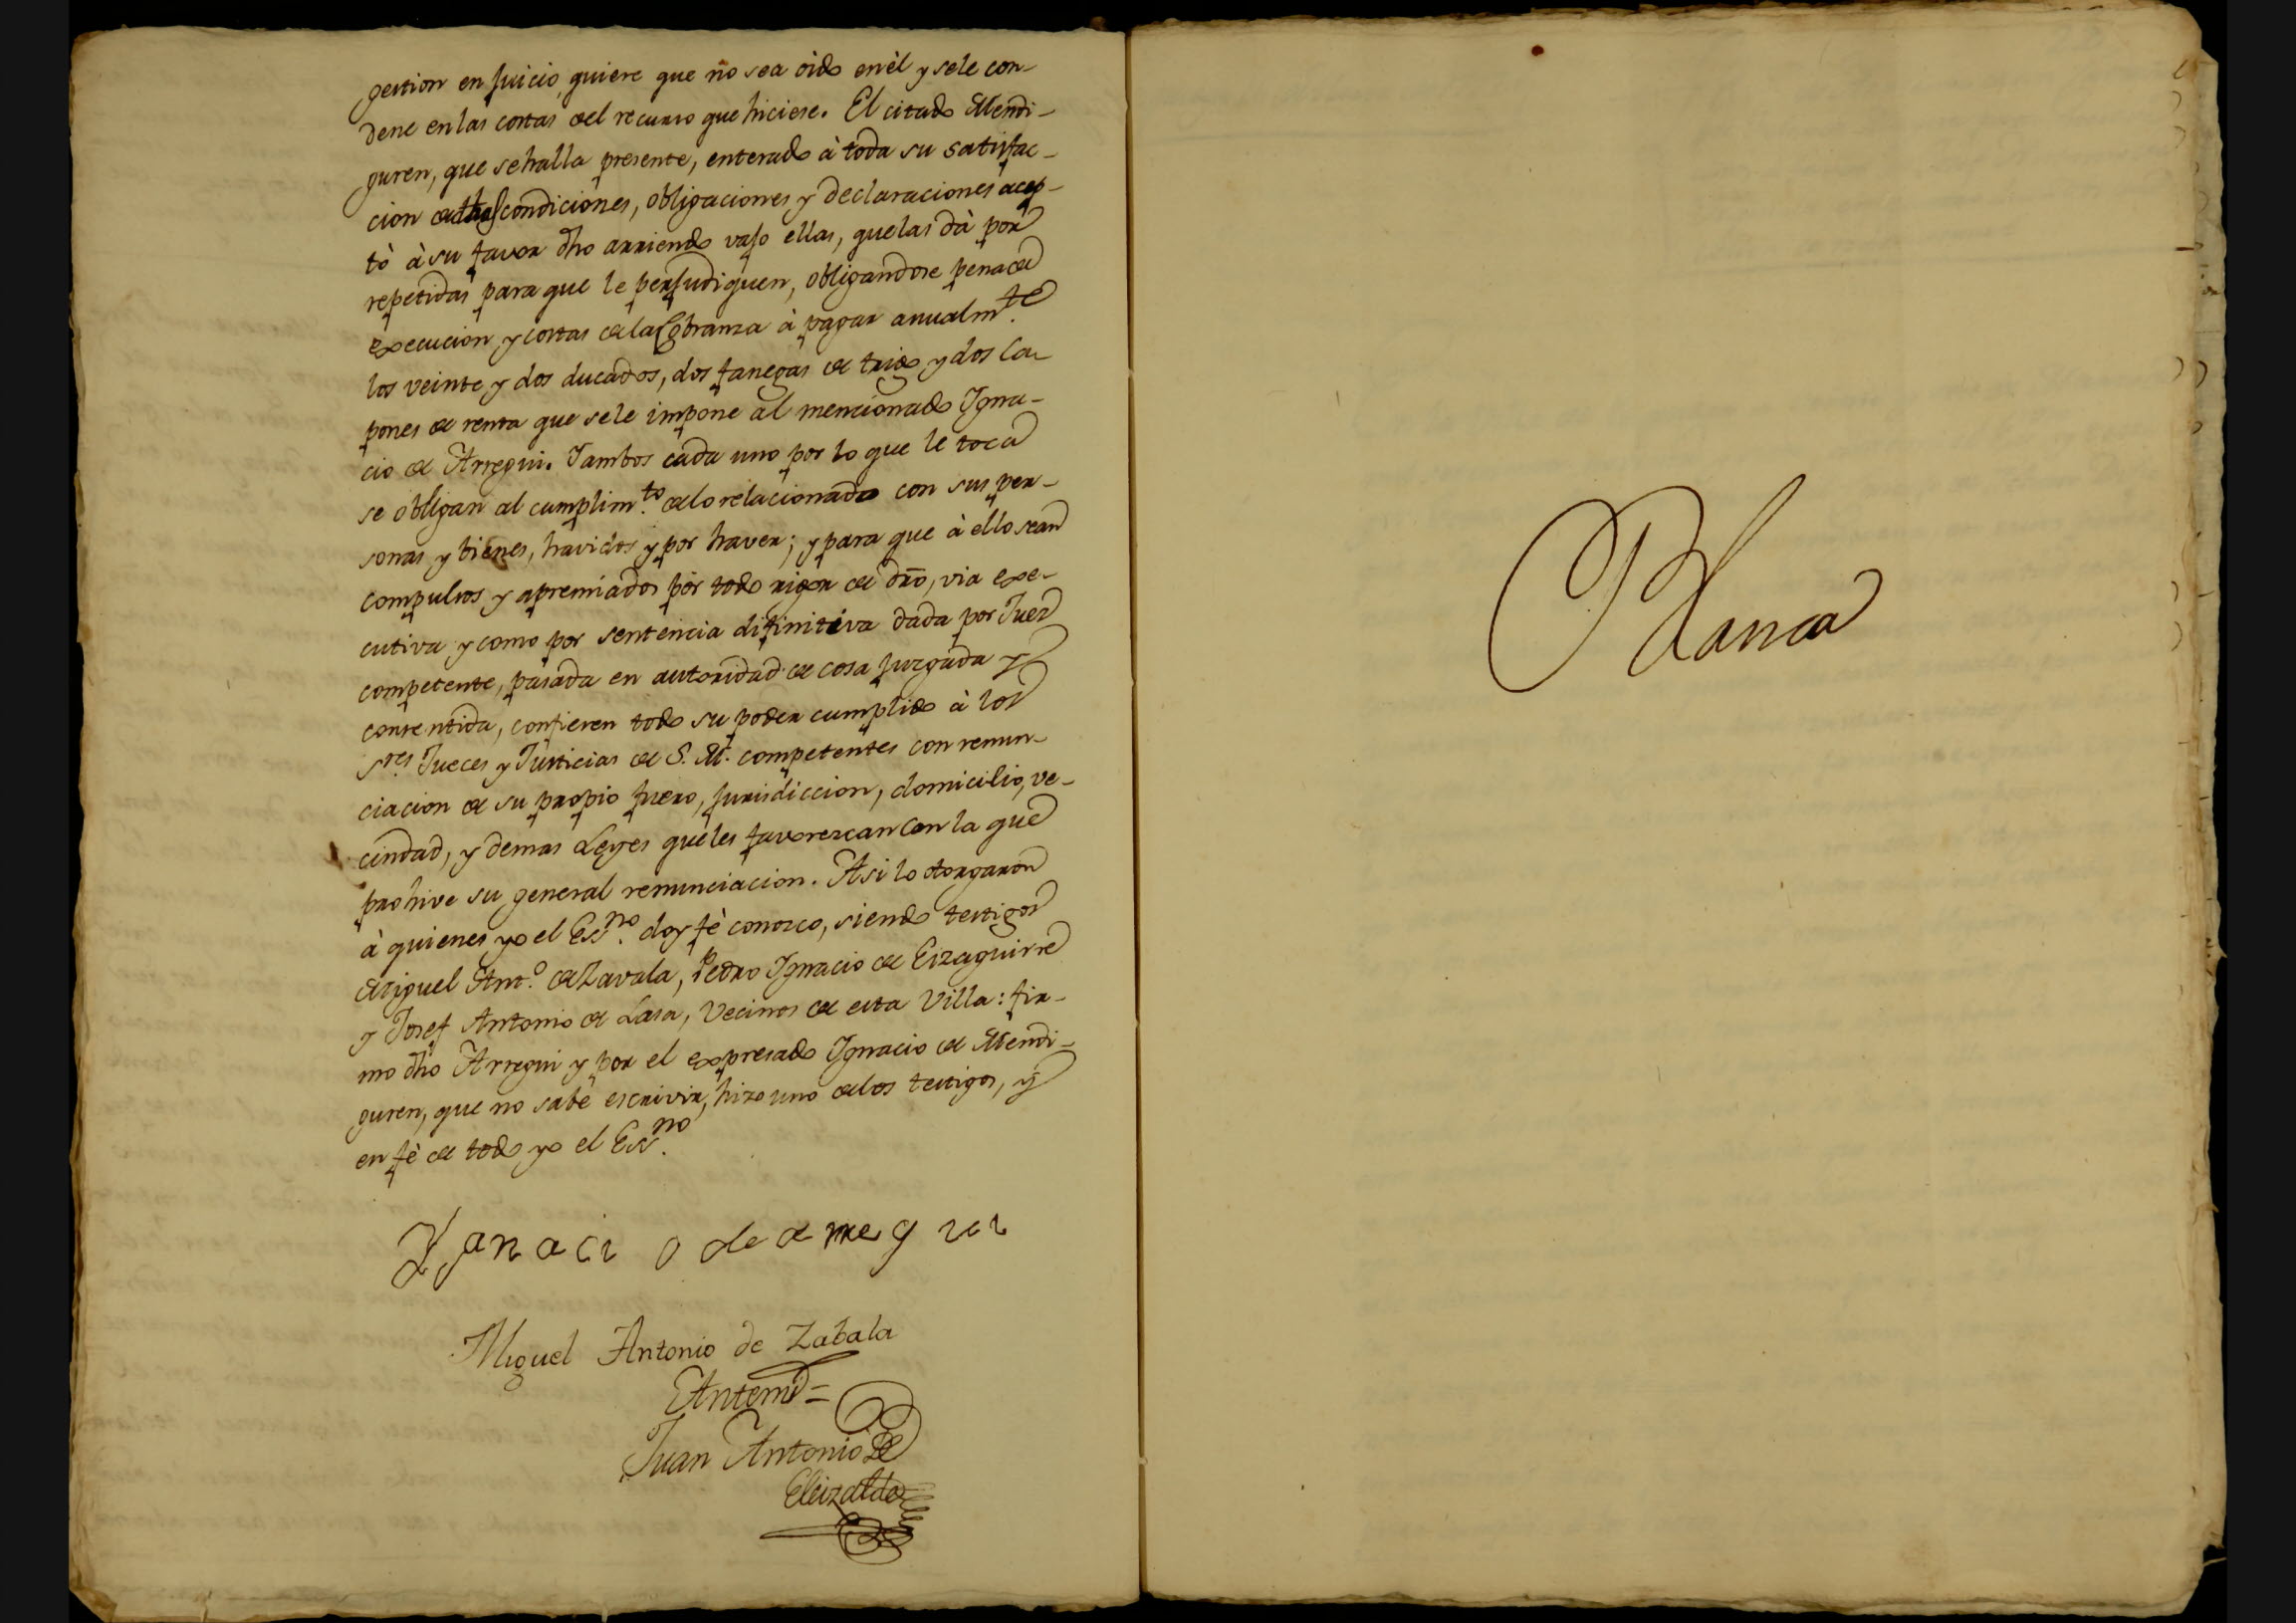 gestion en juicio, quiere que no sea oido en èl y sele con-
dene en las costas del recurso que hiciese. El citado Mendi-
guren, que se halla presente, enterado à toda su satisfac-
cion de dhas condiciones, obligaciones y declaraciones acep-
tò à su favor dho arriendo vajo ellas, que las dà por
repetidas para que le perjudiquen, obligandose pena de
execucion y costas de la Cobranza à pagar anualm.te
los veinte y dos ducados, dos fanegas de trigo y dos Ca-
pones de renta que se le impone al mencionado Igna-
cio de Arregui. Yambos cada uno por lo que le toca
se obligan al cumplim.to de lo relacionado con sus per-
sonas y bienes, havidos y por haver; y para que à ello sean
compulsos y apremiados por todo rigor de dro, via exe-
cutiva y como por sentencia difinitiva dada por Juez
competente, pasada en autoridad de cosa juzgada y
consentida, confieren todo su poder cumplido à los
S.res Jueces y Justicias de S. M. competentes con renun-
ciacion de su propio fuero, jurisdiccion, domicilio, ve-
cindad, y demas Leyes que les favorezcan con la que
prohive su general renunciacion. Asi lo otorgaron
à quienes yo el Ess.no doy fè conozco, siendo testigos
Miguel Ant.o de Zavala, Pedro Ignacio de Eizaguirre
y Josef Antonio de Lasa, Vecinos de esta Villa: fir-
mo dho Arregui y por el expresado Ignacio de Mendi-
guren, que no sabe escrivir, hizo uno de los testigos, y
en fè de todo yo el Ess.no
Ygnacio de arregui
Miguel Antonio de Zabala
Antemi=
Juan Antonio de
Eleizalde
Blanca